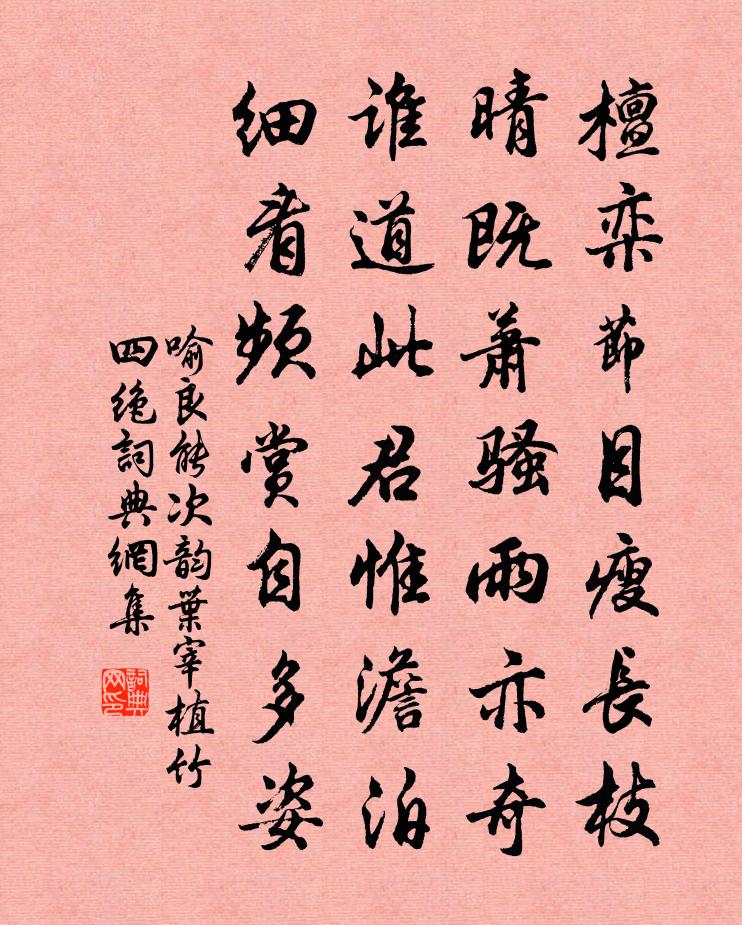 檀栾節目瘦長枝
晴既蕭骚雨亦奇
谁道此君惟澹泊
细看频赏自多姿
喻良能次韵葉宰植竹
四绝詞典網集
詞典网印